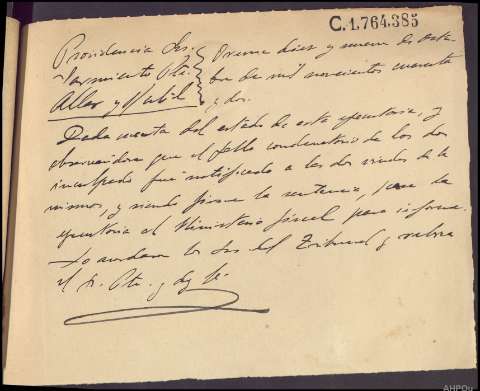 C.1.764.385
Providencia Srs. Orense diez y nueve de octu-
Sarmiento Pte. bre de mil novecientos cuarenta
Aller y y dos.
Dada cuenta del estado de esta ejecutoria, y
observandose que el fallo condenatorio de los dos
inculpados fué notificado a los dos viudas de
mismos, y siendo firme la sentencia, pase la
ejecutoria al Ministerio fiscal para informe.
Lo acordaron los Srs. del Tribunal y rubrica
el Sr. Pte. y doy fe.
AHPOu